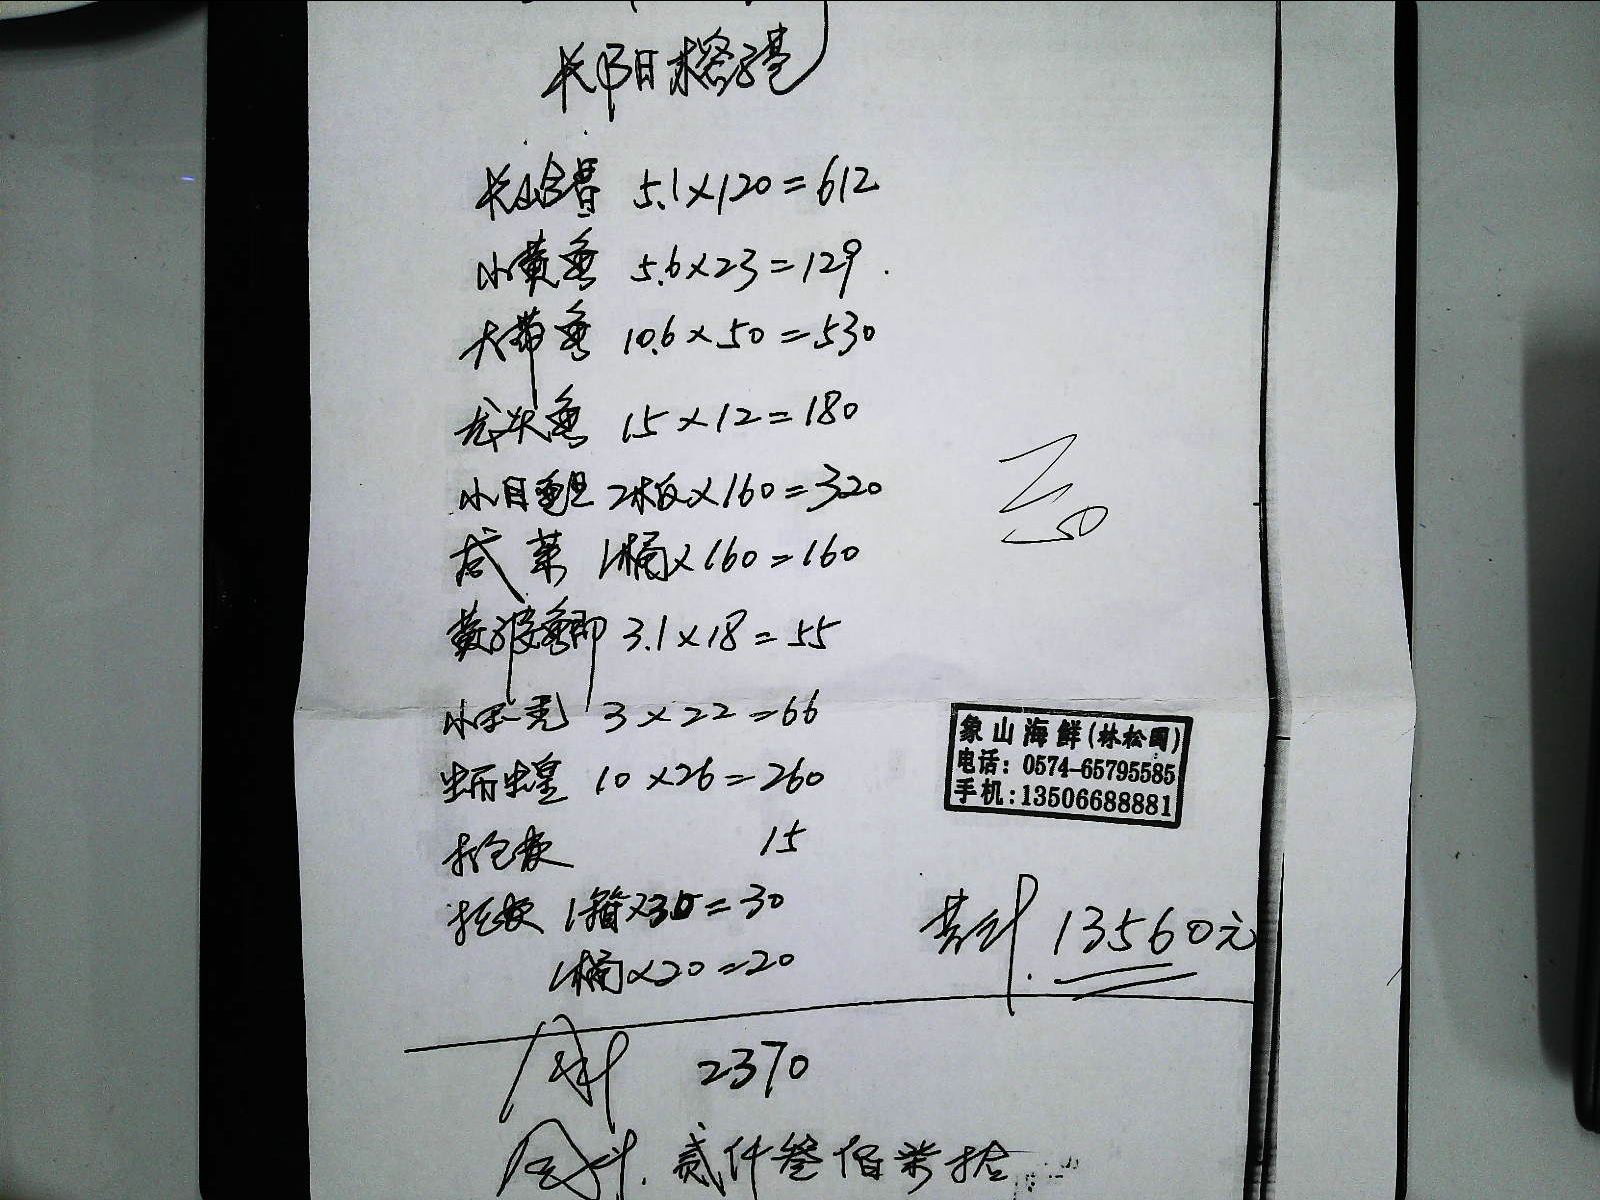 小黄鱼 5.6×23=129.
大带鱼 10.6×50=530
龙头鱼 15×12=180
小目鱼旦 2板×160=320
咸菜 1桶×160=160
3.1×18=55
3×22=66
10×26=260
打包费 15
托费 1箱×30=30
1桶×20=20
合计 2370
合计. 贰仟叁佰柒拾
5.1×120=612
50
象山海鲜(林松国)
电话: 0574-65795585
手机:13506688881
共计. 13560元